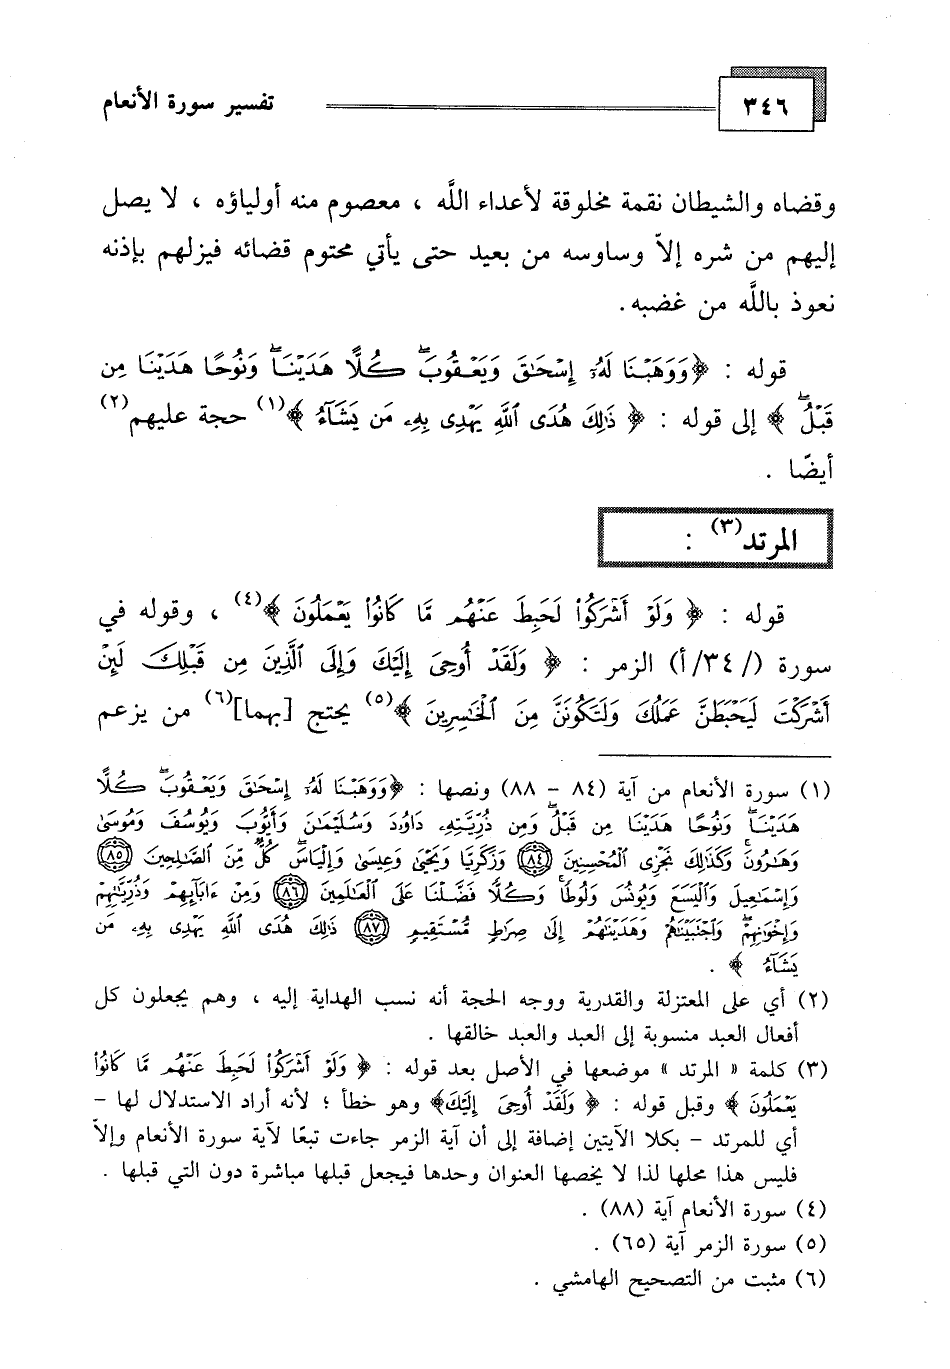 ٣٤٦
تفسير سورة الأنعام
وقضاه والشيطان نقمة مخلوقة لأعداء اللَّه ، معصوم منه أولياؤه ، لا يصل
إليهم من شره إلاّ وساوسه من بعيد حتى يأتي محتوم قضائه فيزلهم بإذنه
نعوذ باللَّه من غضبه.
قوله : ﴿وَوَهَبْنَا لَهُۥٓ إِسْحَٰقَ وَيَعْقُوبَ ۚ كُلًّا هَدَيْنَا ۚ وَنُوحًا هَدَيْنَا مِن
قَبْلُ ۖ ﴾ إلى قوله : ﴿ ذَٰلِكَ هُدَى ٱللَّهِ يَهْدِى بِهِۦ مَن يَشَآءُ ﴾(١) حجة عليهم(٢)
أيضًا .
المرتد(٣) :
قوله : ﴿ وَلَوْ أَشْرَكُوا۟ لَحَبِطَ عَنْهُم مَّا كَانُوا۟ يَعْمَلُونَ ﴾(٤) ، وقوله في
سورة (/٣٤/أ) الزمر : ﴿ وَلَقَدْ أُوحِىَ إِلَيْكَ وَإِلَى ٱلَّذِينَ مِن قَبْلِكَ لَئِنْ
أَشْرَكْتَ لَيَحْبَطَنَّ عَمَلُكَ وَلَتَكُونَنَّ مِنَ ٱلْخَٰسِرِينَ ﴾(٥) يحتج [بهما](٦) من يزعم
(١) سورة الأنعام من آية (٨٤ – ٨٨) ونصها : ﴿وَوَهَبْنَا لَهُۥٓ إِسْحَٰقَ وَيَعْقُوبَ ۚ كُلًّا
هَدَيْنَا ۚ وَنُوحًا هَدَيْنَا مِن قَبْلُ ۖ وَمِن ذُرِّيَّتِهِۦ دَاوُۥدَ وَسُلَيْمَٰنَ وَأَيُّوبَ وَيُوسُفَ وَمُوسَىٰ
وَهَٰرُونَ ۚ وَكَذَٰلِكَ نَجْزِى ٱلْمُحْسِنِينَ ﴿٨٤﴾ وَزَكَرِيَّا وَيَحْيَىٰ وَعِيسَىٰ وَإِلْيَاسَ ۖ كُلٌّ مِّنَ ٱلصَّٰلِحِينَ ﴿٨٥﴾
وَإِسْمَٰعِيلَ وَٱلْيَسَعَ وَيُونُسَ وَلُوطًا ۚ وَكُلًّا فَضَّلْنَا عَلَى ٱلْعَٰلَمِينَ ﴿٨٦﴾ وَمِنْ ءَابَآئِهِمْ وَذُرِّيَّٰتِهِمْ
وَإِخْوَٰنِهِمْ ۖ وَٱجْتَبَيْنَٰهُمْ وَهَدَيْنَٰهُمْ إِلَىٰ صِرَٰطٍ مُّسْتَقِيمٍ ﴿٨٧﴾ ذَٰلِكَ هُدَى ٱللَّهِ يَهْدِى بِهِۦ مَن
يَشَآءُ ﴾ .
(٢) أي على المعتزلة والقدرية ووجه الحجة أنه نسب الهداية إليه ، وهم يجعلون كل
أفعال العبد منسوبة إلى العبد والعبد خالقها .
(٣) كلمة « المرتد » موضعها في الأصل بعد قوله : ﴿ وَلَوْ أَشْرَكُوا۟ لَحَبِطَ عَنْهُم مَّا كَانُوا۟
يَعْمَلُونَ ﴾ وقبل قوله : ﴿ وَلَقَدْ أُوحِىَ إِلَيْكَ﴾ وهو خطأ ؛ لأنه أراد الاستدلال لها –
أي للمرتد – بكلا الآيتين إضافة إلى أن آية الزمر جاءت تبعًا لآية سورة الأنعام وإلاّ
فليس هذا محلها لذا لا يخصها العنوان وحدها فيجعل قبلها مباشرة دون التي قبلها .
(٤) سورة الأنعام آية (٨٨) .
(٥) سورة الزمر آية (٦٥) .
(٦) مثبت من التصحيح الهامشي .